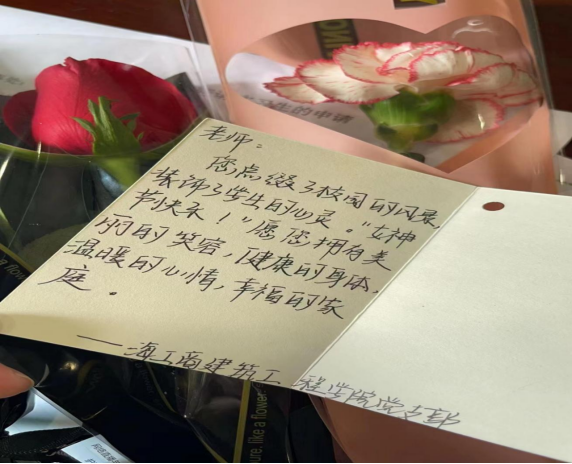 的申请
老师：
您点缀了校园的风景，
装饰了学生的心灵。“女神
节快乐！”愿您拥有美
丽的笑容，健康的身体，
温暖的心情，幸福的家
庭。
——海工商建筑工程学院党支部
ure. like a flower